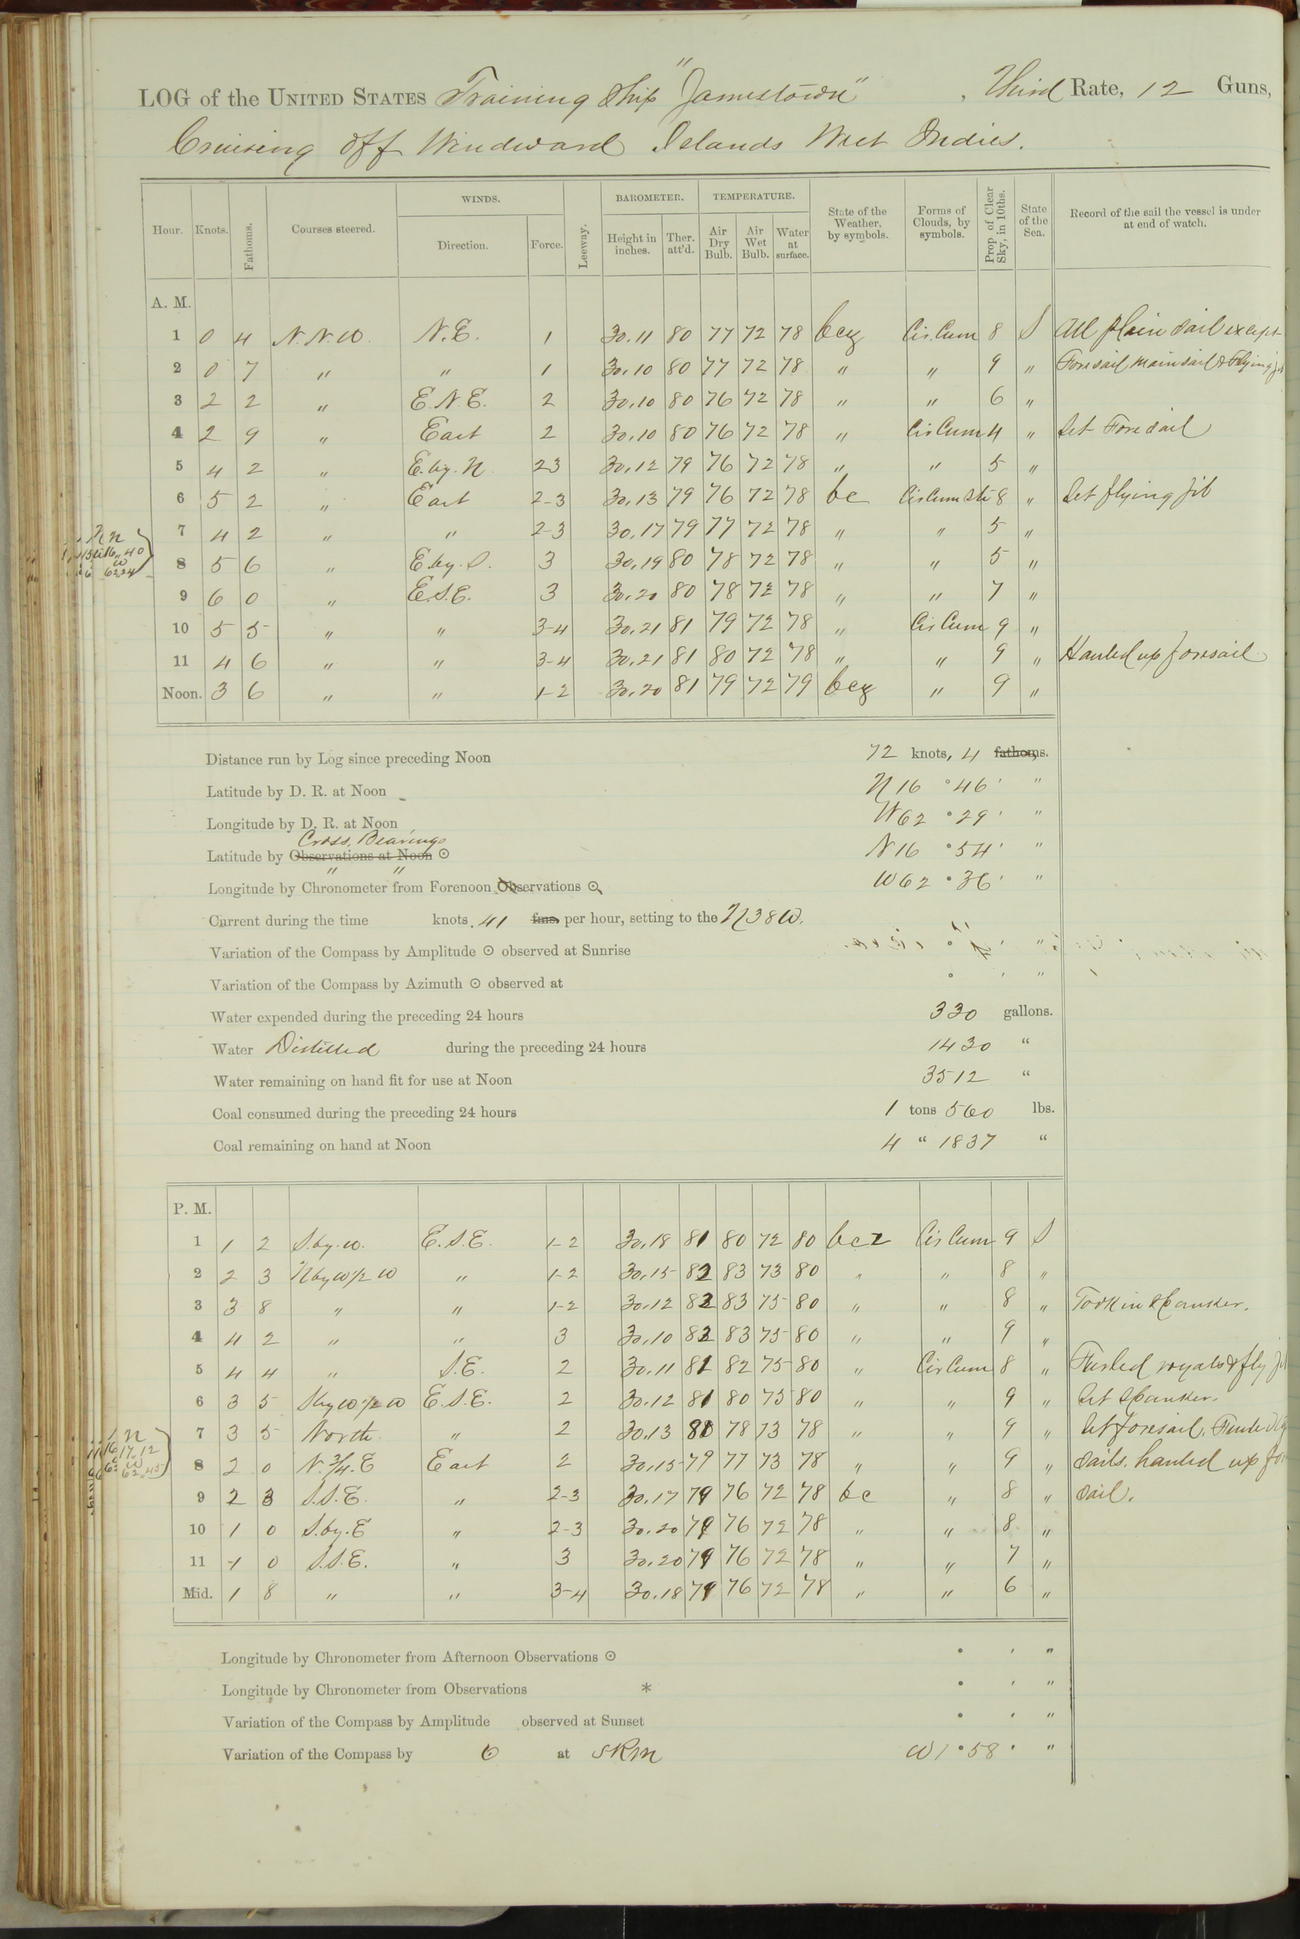 LOG of the UNITED STATES Training Ship "Jamestown", Third Rate, 12 Guns,
Cruising off Windward Islands West Indies.
Hour. Knots. Fathoms. Courses steered. WINDS. Direction. Force. Leeway. BAROMETER. Height in inches. Ther. att'd. TEMPERATURE. Air Dry Bulb. Air Wet Bulb. Water at surface. State of the Weather, by symbols. Forms of Clouds, by symbols. Prop. of Clear Sky, in 10ths. State of the Sea. Record of the sail the vessel is under at end of watch.
A. M.
1 0 4 N.N.W. N.E. 1 30.11 80 77 72 78 bcz Cir.Cum 8 S All plain sail except
2 0 7 " " 1 30.10 80 77 72 78 " " 9 " Foresail mainsail & Flying jib
3 2 2 " E.N.E. 2 30.10 80 76 72 78 " " 6 "
4 2 9 " East 2 30.10 80 76 72 78 " Cir Cum 4 " Set Foresail
5 4 2 " E.by.N 23 30.12 79 76 72 78 " " 5 "
6 5 2 " East 2-3 30.13 79 76 72 78 bc Cir Cum Str 8 " Set flying jib
7 4 2 " " 2-3 30.17 79 77 72 78 " " 5 "
8 5 6 " E.by.S. 3 30.19 80 78 72 78 " " 5 "
9 6 0 " E.S.E. 3 30.20 80 78 72 78 " " 7 "
10 5 5 " " 3-4 30.21 81 79 72 78 " Cir Cum 9 "
11 4 6 " " 3-4 30.21 81 80 72 78 " " 9 " Hauled up foresail
Noon. 3 6 " " 1-2 30.20 81 79 72 79 bcz " 9 "
Distance run by Log since preceding Noon 72 knots, 4 fathoms.
Latitude by D. R. at Noon N 16 ° 46 ' "
Longitude by D. R. at Noon W 62 ° 29 ' "
Cross Bearings
Latitude by Observations at Noon ☉ N 16 ° 54 ' "
" "
Longitude by Chronometer from Forenoon Observations ☉ W 62 ° 36 ' "
Current during the time knots .41 fms. per hour, setting to the N38W.
Variation of the Compass by Amplitude ☉ observed at Sunrise ° ' "
Variation of the Compass by Azimuth ☉ observed at ° ' "
Water expended during the preceding 24 hours 330 gallons.
Water Distilled during the preceding 24 hours 1430 "
Water remaining on hand fit for use at Noon 3512 "
Coal consumed during the preceding 24 hours 1 tons 560 lbs.
Coal remaining on hand at Noon 4 " 1837 "
P. M.
1 1 2 S.by.W. E.S.E. 1-2 30.18 81 80 72 80 bcz Cir Cum 9 S
2 2 3 N by W 1/2 W " 1-2 30.15 82 83 73 80 " " 8 "
3 3 8 " " 1-2 30.12 82 83 75 80 " " 8 " Took in spanker.
4 4 2 " " 3 30.10 82 83 75 80 " " 9 "
5 4 4 " S.E. 2 30.11 81 82 75 80 " Cir Cum 8 " Furled royals & fly jib
6 3 5 N by W 1/2 W E.S.E. 2 30.12 81 80 75 80 " " 9 " Set spanker.
7 3 5 North " 2 30.13 80 78 73 78 " " 9 " Set foresail. Furled
8 2 0 N. 3/4. E East 2 30.15 79 77 73 78 " " 9 " sails. hauled up fore
9 2 3 S.S.E. " 2-3 30.17 79 76 72 78 bc " 8 " sail.
10 1 0 S.by.E " 2-3 30.20 79 76 72 78 " " 8 "
11 1 0 S.S.E. " 3 30.20 79 76 72 78 " " 7 "
Mid. 1 8 " " 3-4 30.18 79 76 72 78 " " 6 "
Longitude by Chronometer from Afternoon Observations ☉ ° ' "
Longitude by Chronometer from Observations * ° ' "
Variation of the Compass by Amplitude observed at Sunset ° ' "
Variation of the Compass by at W 1 ° 58 ' "